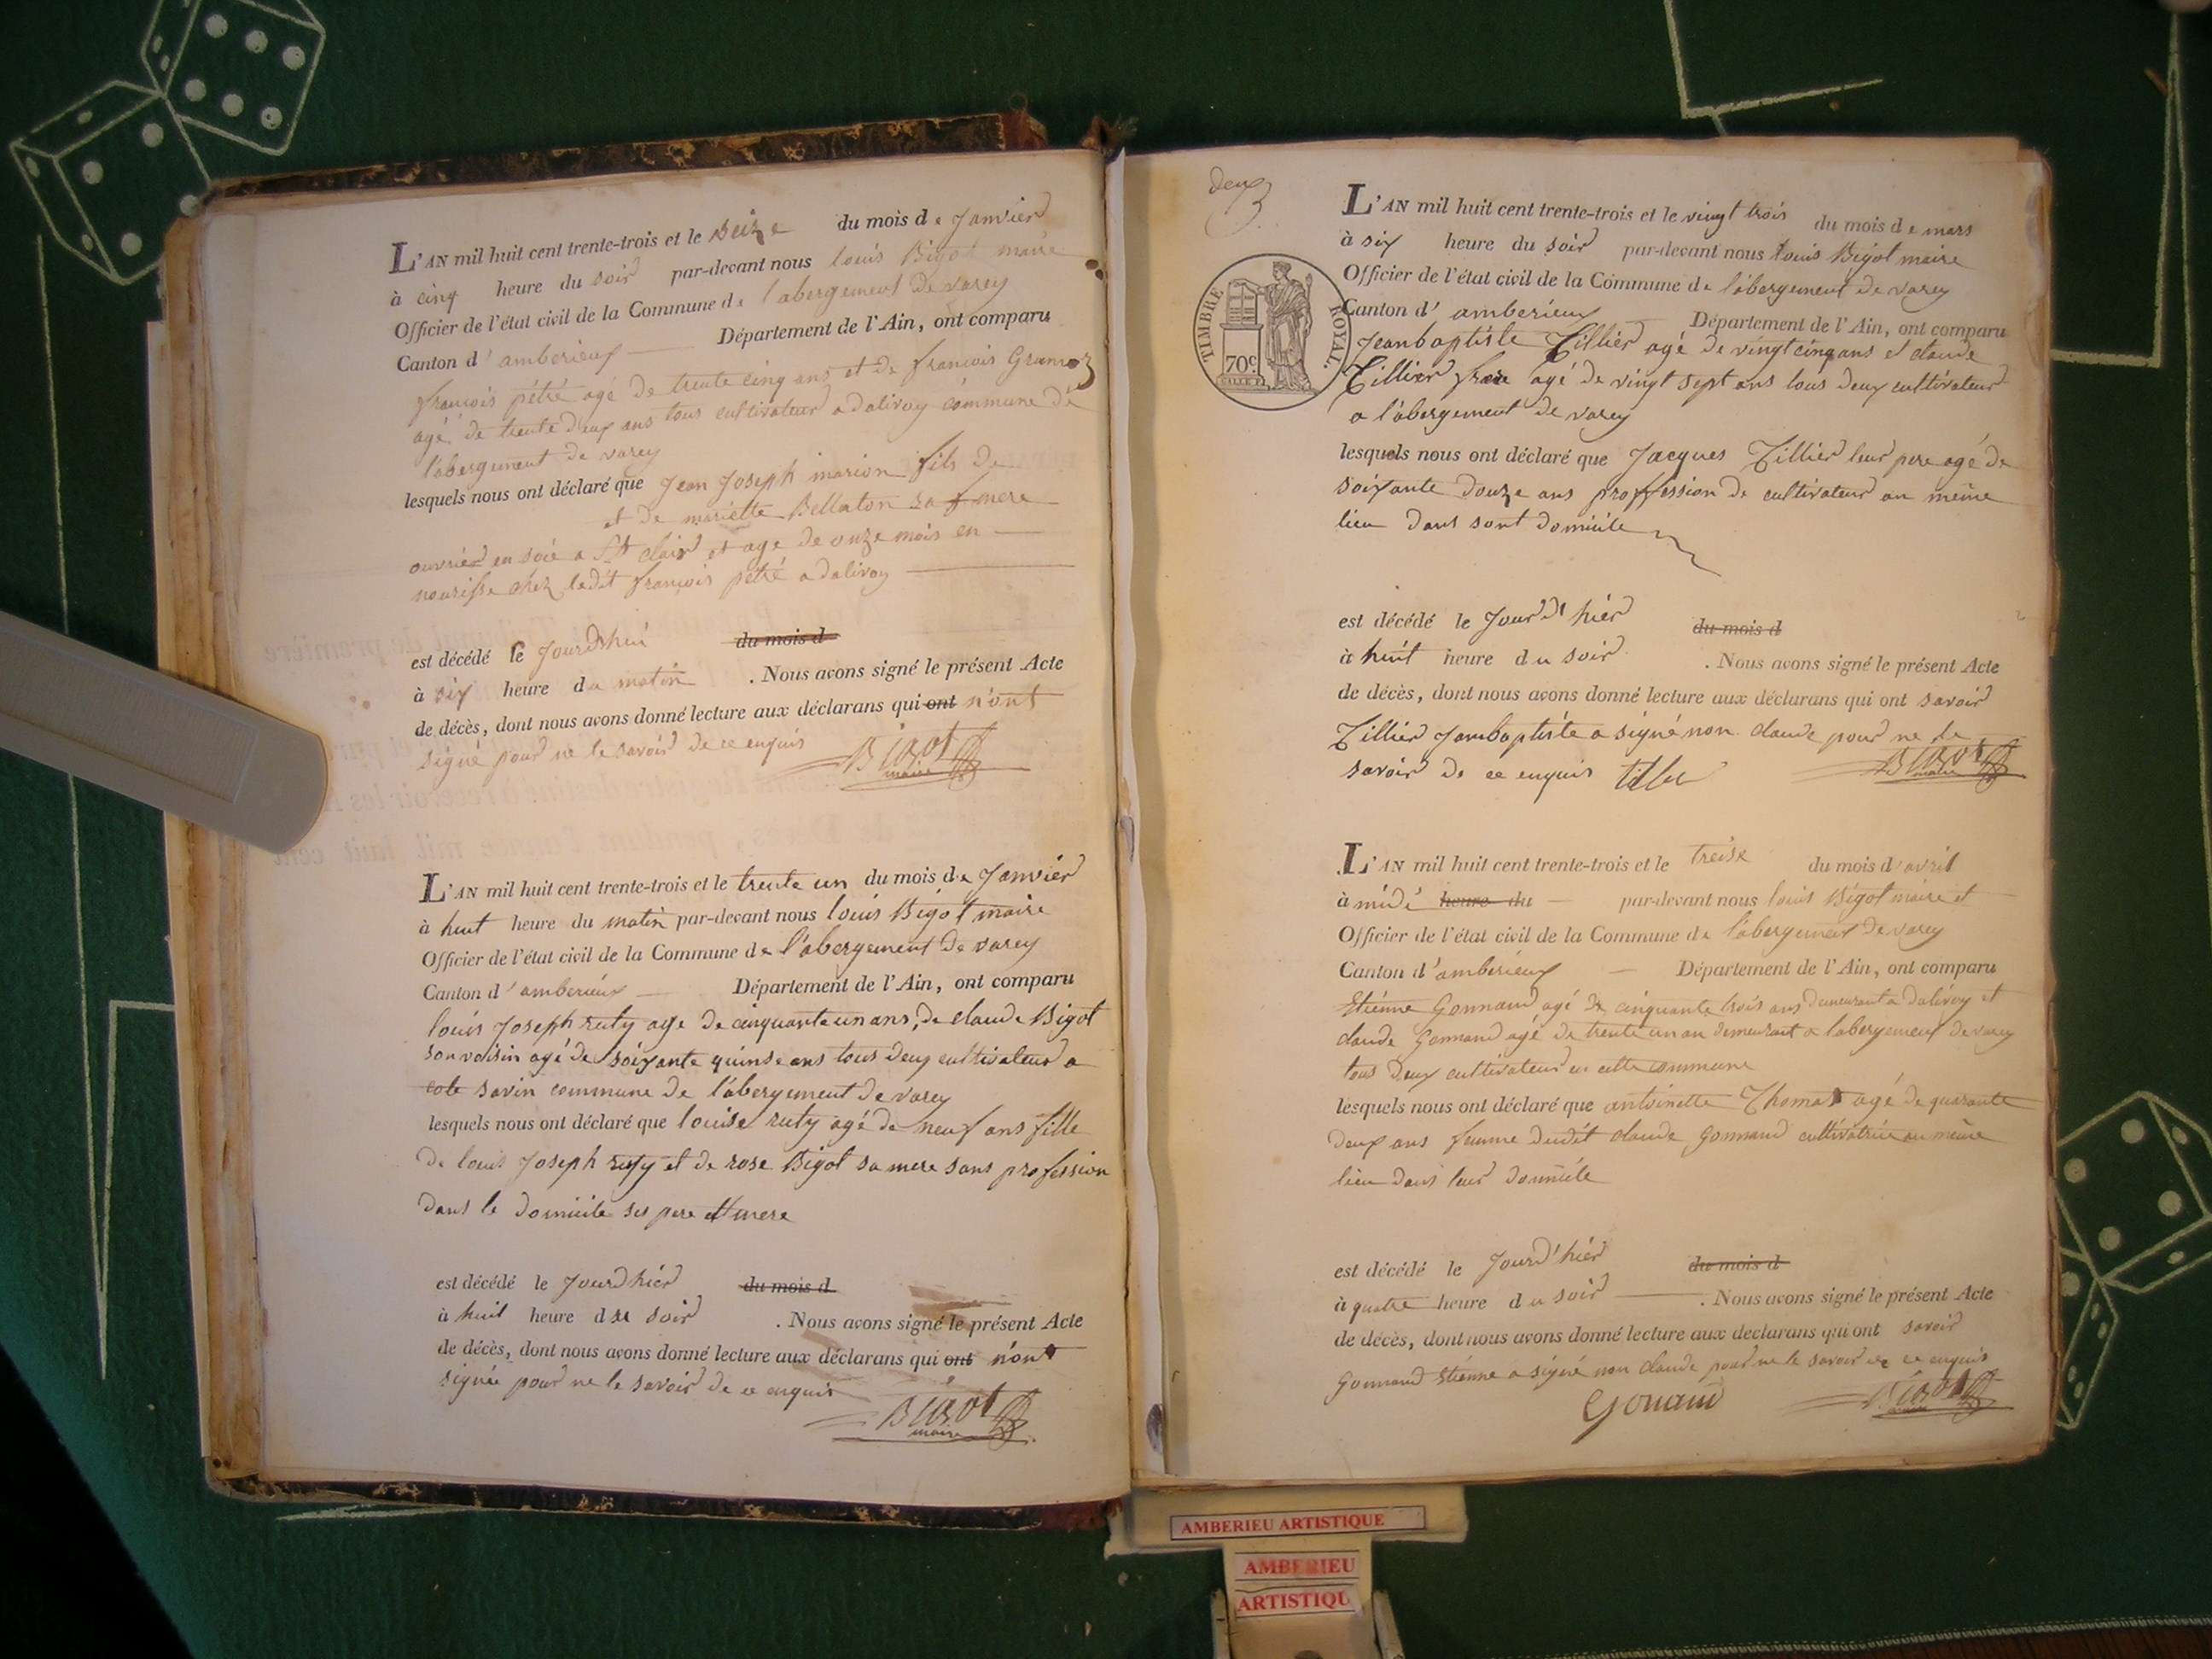 L'AN mil huit cent trente-trois et le Seize du mois de Janvier
à cinq heure du soir par-devant nous louis Bigot maire
Officier de l'état civil de la Commune de l'abergement De varey
Canton d'amberieux Département de l'Ain, ont comparu
françois pétré agé de trente cinq ans et de francois
agé de trente deux ans tous cultivateur a dalivoy commune de
l'abergement de varey
lesquels nous ont déclaré que Jean Joseph marion fils de
et de mariette Bellaton sa mere
ouvrier en soie a St clair et age de onze mois en
nourisse chez ledit françois pétré a dalivoy
est décédé le Jourdhui du mois d
à six heure du matin . Nous avons signé le présent Acte
de décès, dont nous avons donné lecture aux déclarans qui ont n'ont
signé pour ne le savoir de ce enquis Bigot
maire
L'AN mil huit cent trente-trois et le trente un du mois de Janvier
à huit heure du matin par-devant nous louis Bigot maire
Officier de l'état civil de la Commune de l'abergement De varey
Canton d'amberieux Département de l'Ain, ont comparu
louis Joseph ruty age de cinquante un ans, de claude Bigot
son voisin agé de soixante quinse ans tous deux cultivateur a
cote savin commune de l'abergement de varey
lesquels nous ont déclaré que louise ruty agé de neuf ans fille
de louis Joseph ruty et de rose Bigot sa mere sans profession
dans le domicile ses pere et mere
est décédé le Jourdhier du mois d
à huit heure du soir . Nous avons signé le présent Acte
de décès, dont nous avons donné lecture aux déclarans qui ont n'ont
signée pour ne le savoir de ce enquis
Bigot
maire
deux
TIMBRE ROYAL.
70c
L'AN mil huit cent trente-trois et le vingt trois du mois de mars
à six heure du soir par-devant nous Louis Bigot maire
Officier de l'état civil de la Commune de l'abergement de varey
Canton d'amberieux Département de l'Ain, ont comparu
Jeanbaptiste Tillier agé de vingt cinq ans et claude
Tillier frere agé de vingt sept ans tous deux cultivateur
a l'abergement de varey
lesquels nous ont déclaré que Jacques Tillier leur pere agé de
soixante douze ans proffession de cultivateur au même
lieu dans sont domicile
est décédé le Jourd'hier du mois d
à huit heure du soir . Nous avons signé le présent Acte
de décès, dont nous avons donné lecture aux déclarans qui ont savoir
Tillier Janbaptiste a signé non claude pour ne le
savoir de ce enquis Bigot
maire
L'AN mil huit cent trente-trois et le treise du mois d'avril
à midi heure du par-devant nous louis Bigot maire et
Officier de l'état civil de la Commune de l'abergement de varey
Canton d'amberieux Département de l'Ain, ont comparu
Etiénne Gonnand agé de cinquante trois ans demeurant a dalivoy et
claude Gonnand agé de trente un an demeurant a l'abergement de varey
tous deux cultivateur en cette commune
lesquels nous ont déclaré que antoinette Thomas agé de quarante
deux ans femme dudit claude Gonnand cultivatrice au même
lieu dans leur domicile
est décédé le Jourd'hier du mois d
à quatre heure du soir . Nous avons signé le présent Acte
de décès, dont nous avons donné lecture aux declarans qui ont savoir
Gonnand Etienne a signé non claude pour ne le savoir de ce enquis
Gonand Bigot
maire
AMBERIEU ARTISTIQUE
AMBERIEU
ARTISTIQU